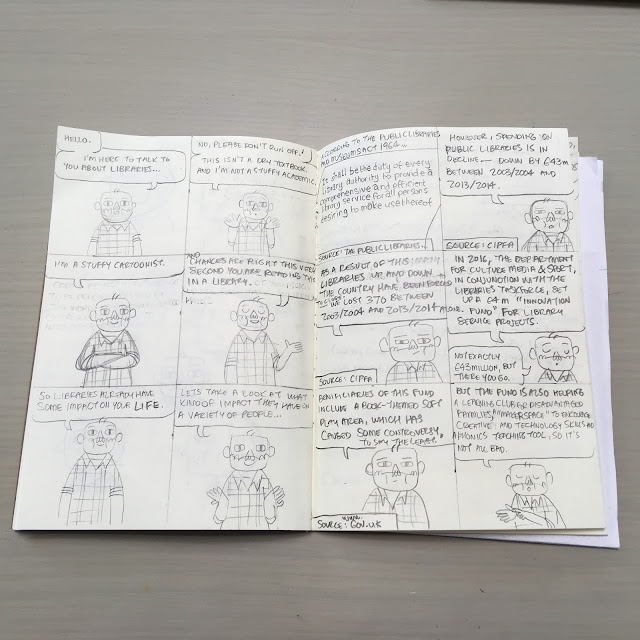 HELLO.
I'M HERE TO TALK TO
YOU ABOUT LIBRARIES...
NO, PLEASE DON'T RUN OFF!
THIS ISN'T A DRY TEXTBOOK,
AND I'M NOT A STUFFY ACADEMIC.
I'M A STUFFY CARTOONIST.
AND
CHANCES ARE RIGHT THIS VERY
SECOND YOU ARE READING THIS
IN A LIBRARY.
SO LIBRARIES ALREADY HAVE
SOME IMPACT ON YOUR LIFE.
LETS TAKE A LOOK AT WHAT
KIND OF IMPACT THEY HAVE ON
A VARIETY OF PEOPLE...
ACCORDING TO THE PUBLIC LIBRARIES
AND MUSEUMS ACT 1964...
It shall be the duty of every
library authority to provide a
comprehensive and efficient
library service for all persons
desiring to make use thereof
SOURCE: THE PUBLIC LIBRARIES
HOWEVER, SPENDING ON
PUBLIC LIBRARIES IS IN
DECLINE — DOWN BY £43M
BETWEEN 2003/2004 AND
2013/2014.
SOURCE: CIPFA
AS A RESULT OF THIS
LIBRARIES UP AND DOWN
THE COUNTRY HAVE BEEN FORCED
LOST 370 BETWEEN
2003/2004 AND 2013/2014
SOURCE: CIPFA
IN 2016, THE DEPARTMENT
FOR CULTURE MEDIA & SPORT,
IN CONJUNCTION WITH THE
LIBRARIES TASKFORCE, SET
UP A £4M "INNOVATION
FUND" FOR LIBRARY
SERVICE PROJECTS.
NOT EXACTLY
£43 MILLION, BUT
THERE YOU GO.
BENIFICIARIES OF THIS FUND
INCLUDE A BOOK-THEMED SOFT
PLAY AREA, WHICH HAS
CAUSED SOME CONTROVERSY,
TO SAY THE LEAST.
SOURCE: GOV.UK
BUT THE FUND IS ALSO HELPING
A LEARNING CLUB FOR DISADVANTAGED
FAMILIES, A "MAKERSPACE" TO ENCOURAGE
CREATIVE AND TECHNOLOGY SKILLS AND
A PHONICS TEACHING TOOL, SO IT'S
NOT ALL BAD.